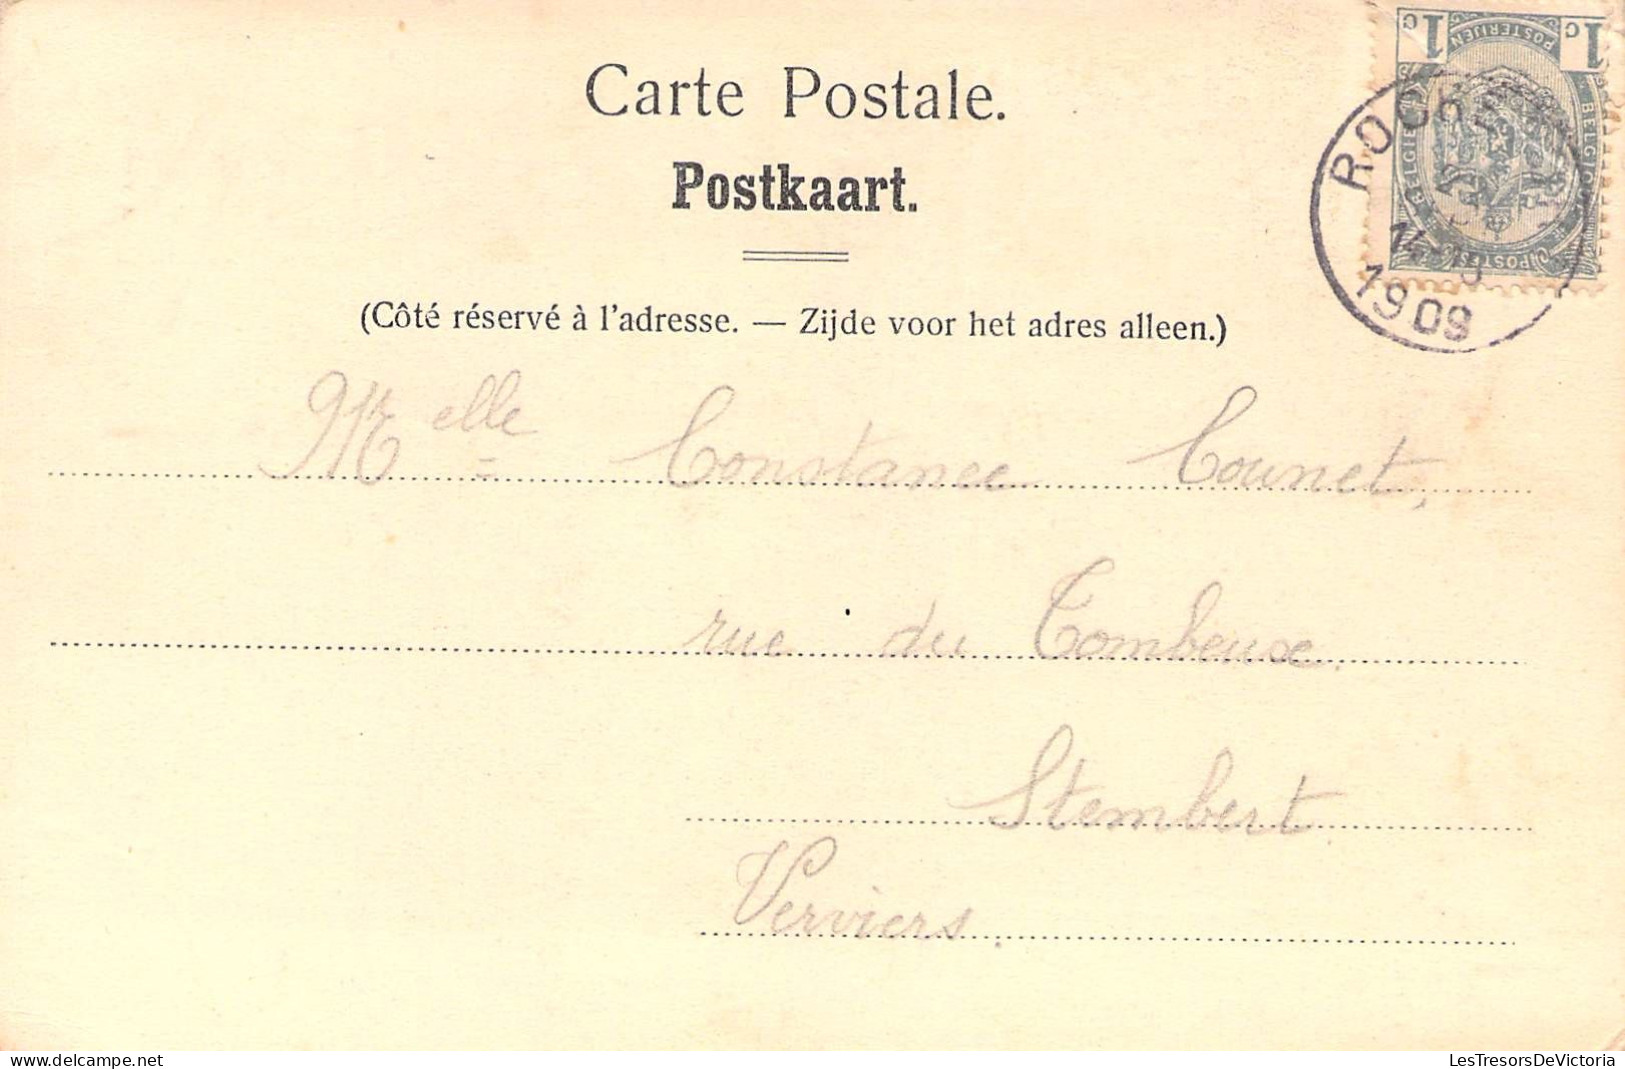 Carte Postale.
Postkaart.
(Côté réservé à l'adresse. — Zijde voor het adres alleen.)
1c 1c
POSTERIJEN
BELGIË BELGIQUE
POSTES
1909
Melle Constance Counet,
rue du Tombeux.
Stembert
Verviers.
LesTresorsDeVictoria
delcampe.net